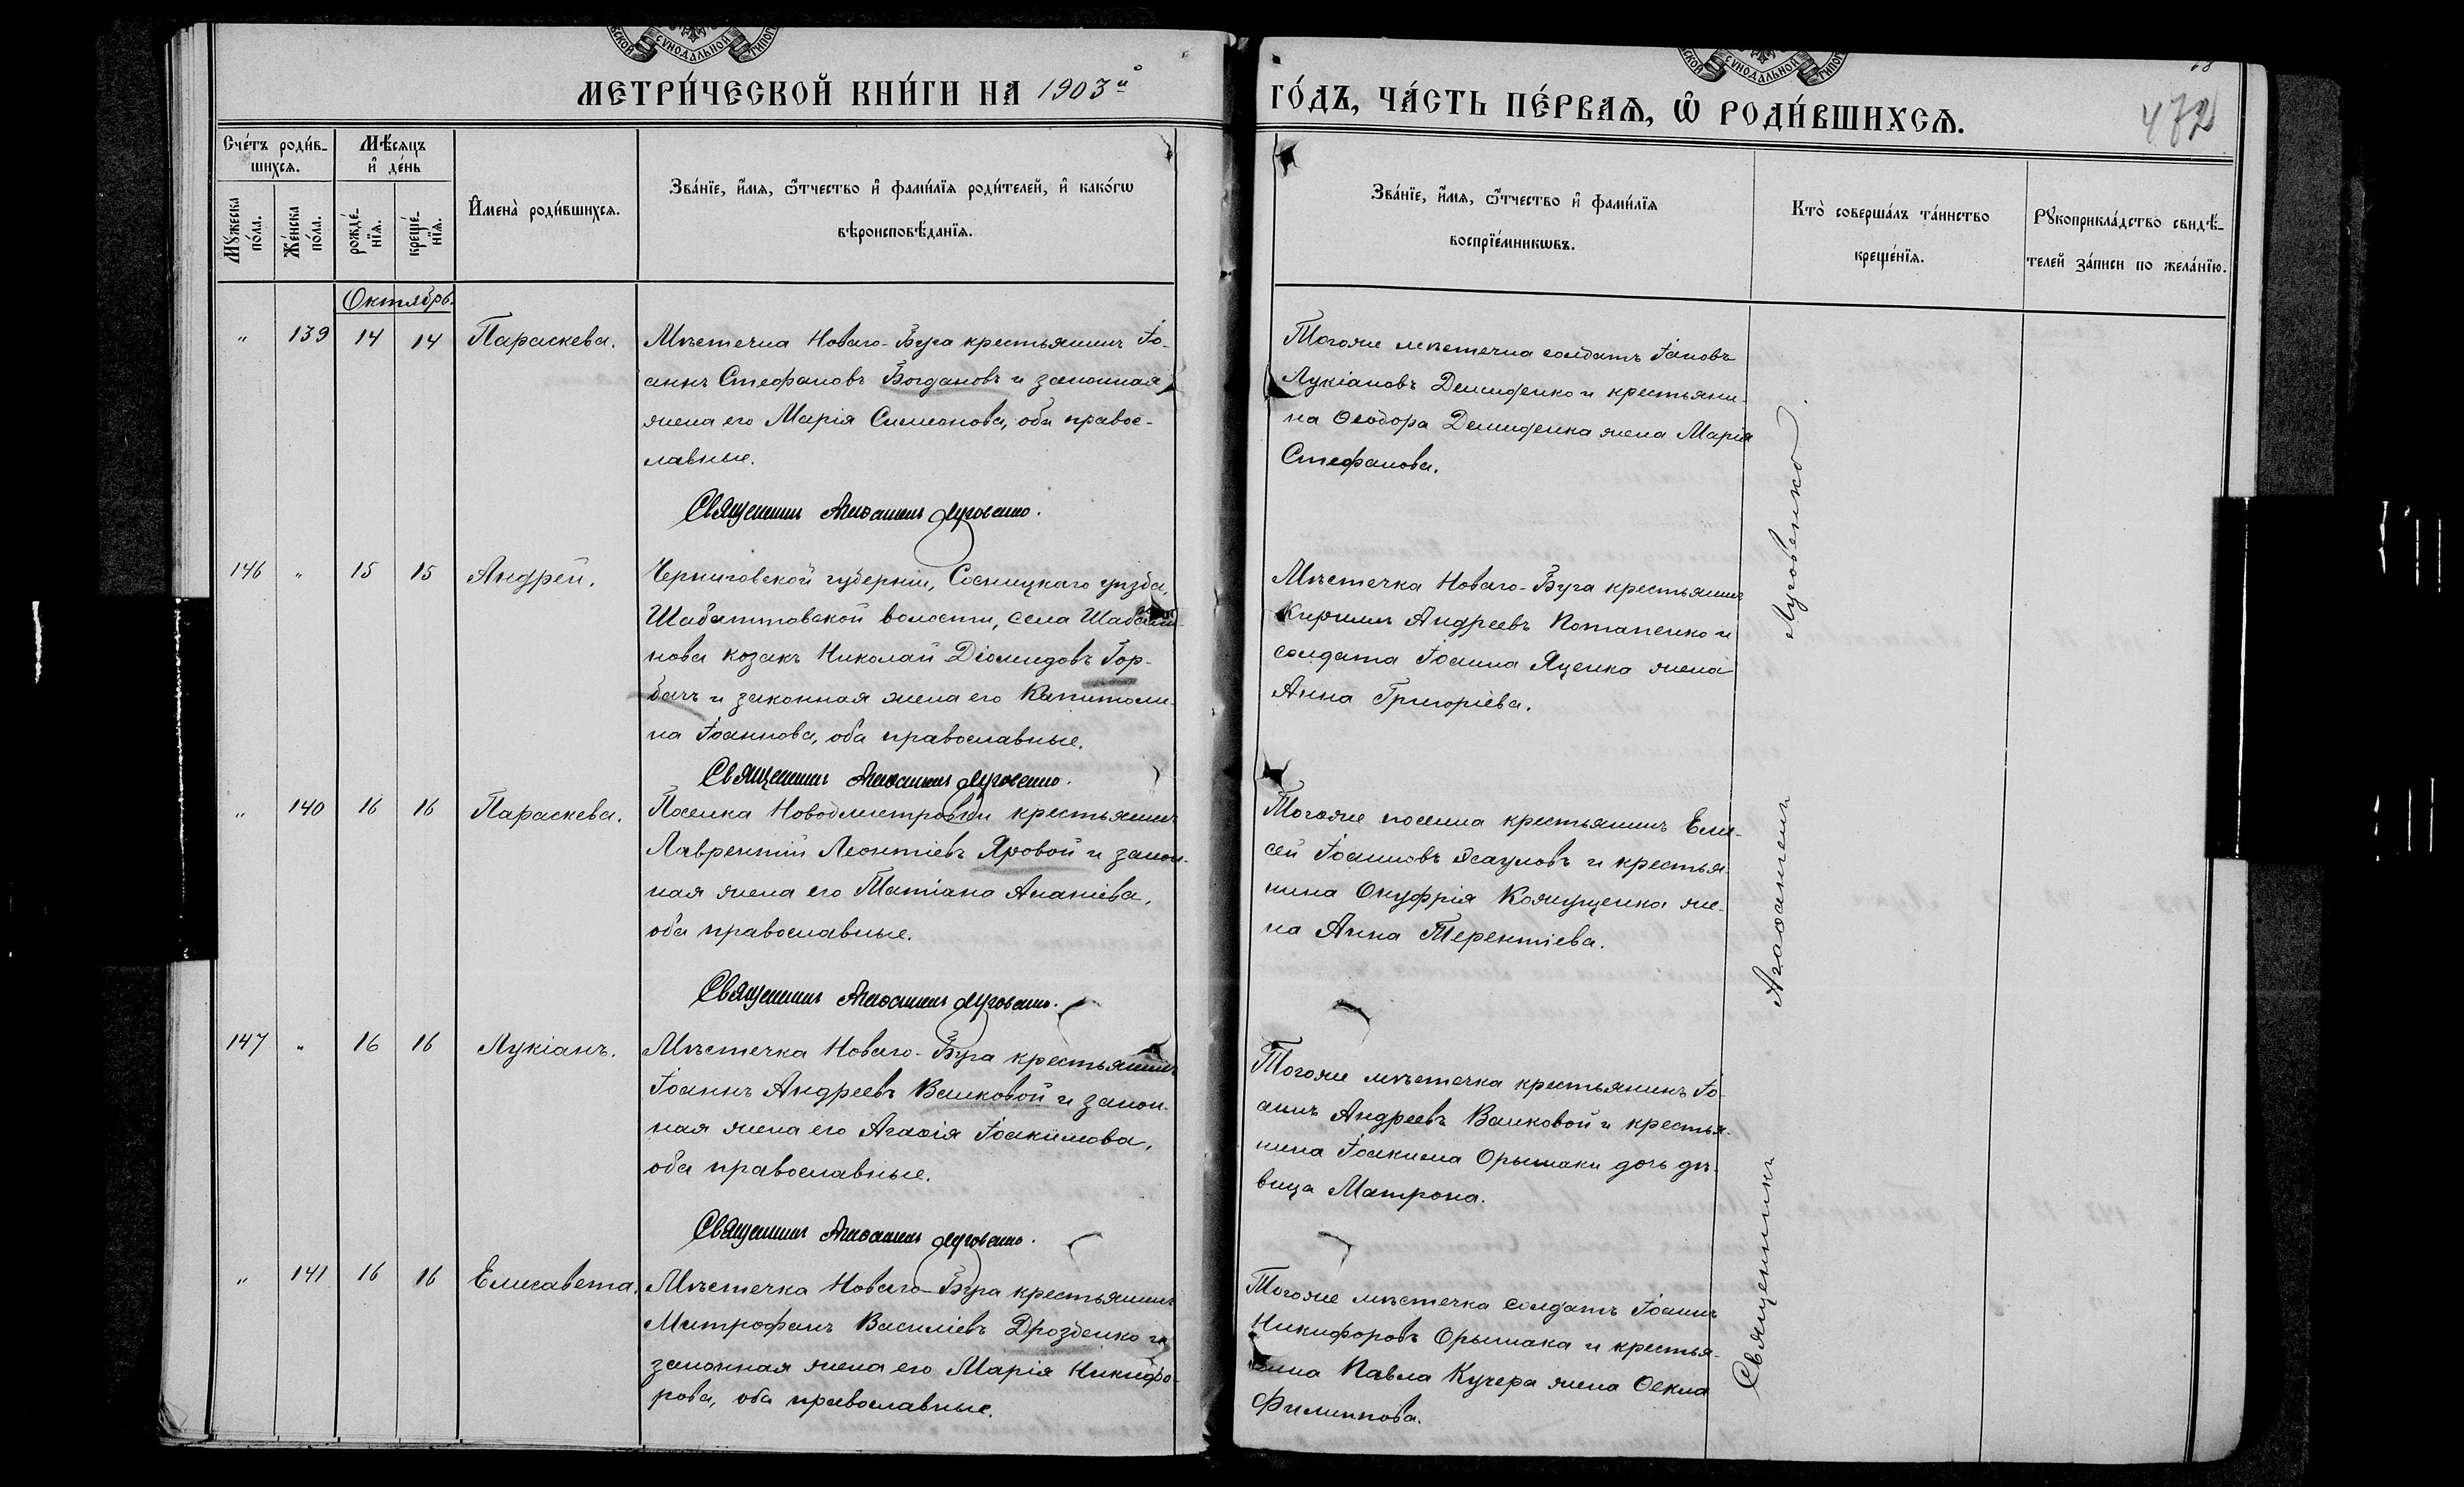 СѴНОДАЛЬНОЙ
СѴНОДАЛЬНОЙ
МЕТРИ́ЧЕСКОЙ КНИ́ГИ НА 1903й
ГО́ДЪ, ЧА́СТЬ ПЕ́РВАѦ, Ѡ҆ РОДИ́ВШИХСѦ.
472
Сче́тъ роди́в-
шихсѧ.
Мѣ́сѧцъ
и҆ де́нь
Мꙋ́жеска
по́ла.
Же́нска
по́ла.
рожде́-
нїѧ.
креще́-
нїѧ.
И҆мена̀ роди́вшихсѧ.
Зва́нїе, и҆́мѧ, ѻ҆́тчество и҆ фами́лїѧ роди́телей, и҆ како́гѡ
вѣроисповѣ́данїѧ.
Зва́нїе, и҆́мѧ, ѻ҆́тчество и҆ фами́лїѧ
воспрїе́мникѡвъ.
Кто̀ соверша́лъ та́инство
креще́нїѧ.
Рꙋкоприкла́дство свидѣ́-
телей за́писи по жела́нїю.
Октябрь.
" 139 14 14 Параскева.
Мѣстечка Новаго-Буга крестьянинъ Іо-
аннъ Стефановъ Богдановъ и законная
жена его Марія Симеонова, оба правос-
лавные.
Священникъ Агаѳангелъ Луговенко.
Тогоже мѣстечка солдатъ Іаковъ
Лукіановъ Демиденко и крестьяни-
на Ѳеодора Демиденка жена Марія
Стефанова.
146 " 15 15 Андрей.
Черниговской губерніи, Сосницкаго уѣзда,
Шабалтовской волости, села Шабали-
нова козакъ Николай Діомидовъ Гор-
бачъ и законная жена его Капитоли-
на Іоаннова, оба православные.
Священникъ Агаѳангелъ Луговенко.
Мѣстечка Новаго-Буга крестьянинъ
Кириллъ Андреевъ Потапенко и
солдата Іоанна Яценка жена
Анна Григоріева.
" 140 16 16 Параскева.
Поселка Новодмитровки крестьянинъ
Лаврентій Леонтіевъ Яровой и закон-
ная жена его Татіана Ананіева,
оба православные.
Священникъ Агаѳангелъ Луговенко.
Тогоже поселка крестьянинъ Ели-
сей Іоанновъ Ясауловъ и крестья-
нина Онуфрія Кожущенка же-
на Анна Терентіева.
147 " 16 16 Лукіанъ.
Мѣстечка Новаго-Буга крестьянинъ
Іоаннъ Андреевъ Валковой и закон-
ная жена его Агаѳія Іоакимова,
оба православные.
Священникъ Агаѳангелъ Луговенко.
Тогоже мѣстечка крестьянинъ Іо-
аннъ Андреевъ Валковой и крестья-
нина Іоакима Орышаки дочь дѣ-
вица Матрона.
" 141 16 16 Елисавета.
Мѣстечка Новаго-Буга крестьянинъ
Митрофанъ Василіевъ Дрозденко и
законная жена его Марія Никифо-
рова, оба православные.
Тогоже мѣстечка солдатъ Іоаннъ
Никифоровъ Орышака и крестья-
нина Павла Кучера жена Ѳекла
Филиппова.
Священникъ Агаѳангелъ Луговенко.